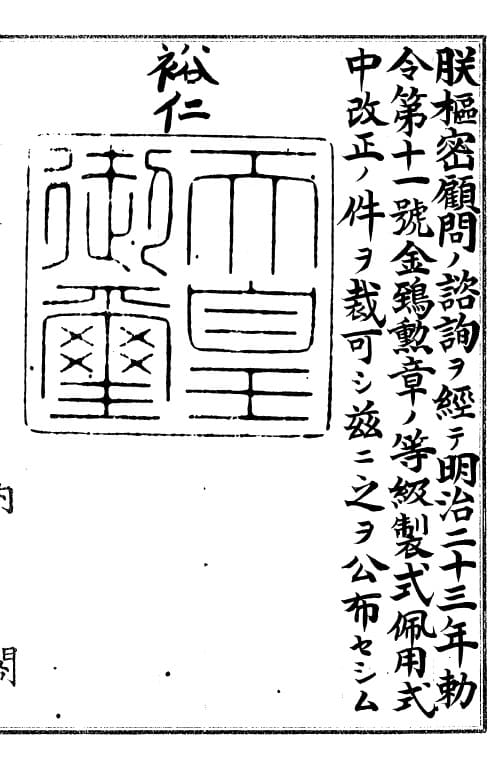 朕樞密顧問ノ諮詢ヲ經テ明治二十三年勅
令第十一號金鵄勲章ノ等級製式佩用式
中改正ノ件ヲ裁可シ茲ニ之ヲ公布セシム
裕仁
天皇
御璽
内閣